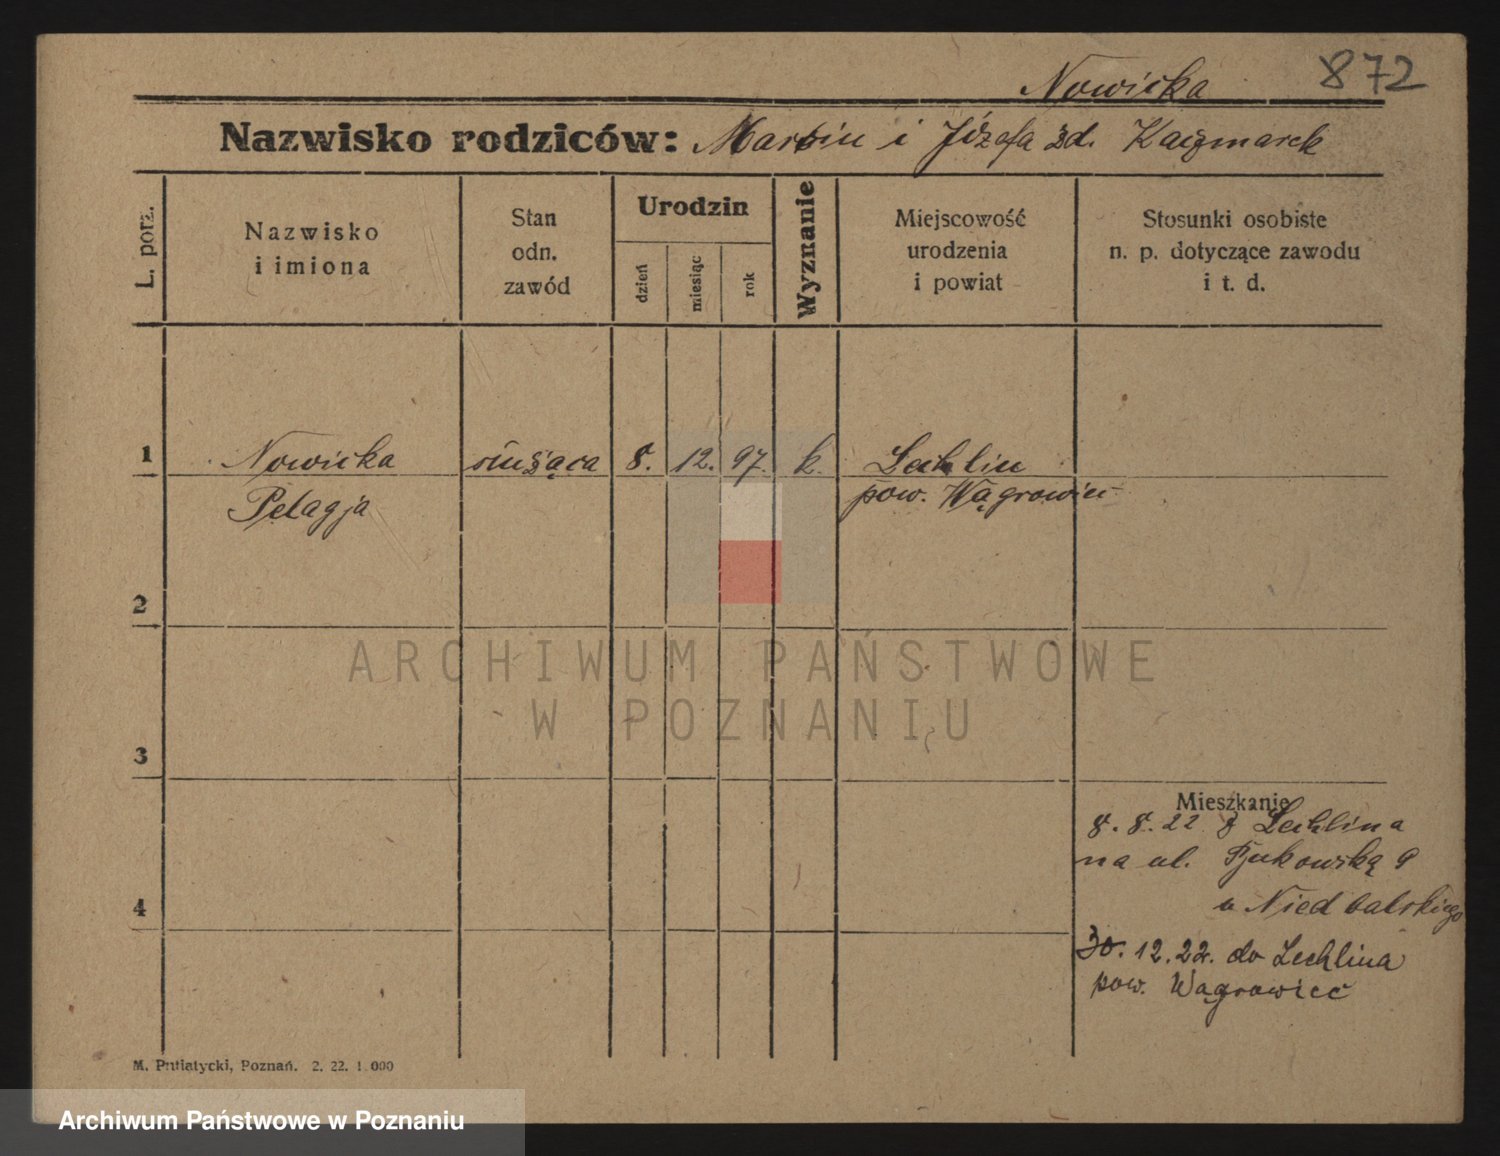 Nowicka 872
Nazwisko rodziców: Marcin i Józefa zd. Kaczmarek
L. porz.
Nazwisko
i imiona
Stan
odn.
zawód
Urodzin
dzień
miesiąc
rok
Wyznanie
Miejscowość
urodzenia
i powiat
Stosunki osobiste
n. p. dotyczące zawodu
i t. d.
1 Nowicka służąca 8. 12. 97. k. Lechlin
Pelagja pow. Wągrowiec
2
3
4
Mieszkanie
8. 8. 22 z Lechlina
na ul. Bukowską 9
u Niedbalskiego
30. 12. 22. do Lechlina
pow. Wągrowiec
M. Putiatycki, Poznań. 2. 22. 1.000
ARCHIWUM PAŃSTWOWE
W POZNANIU
Archiwum Państwowe w Poznaniu